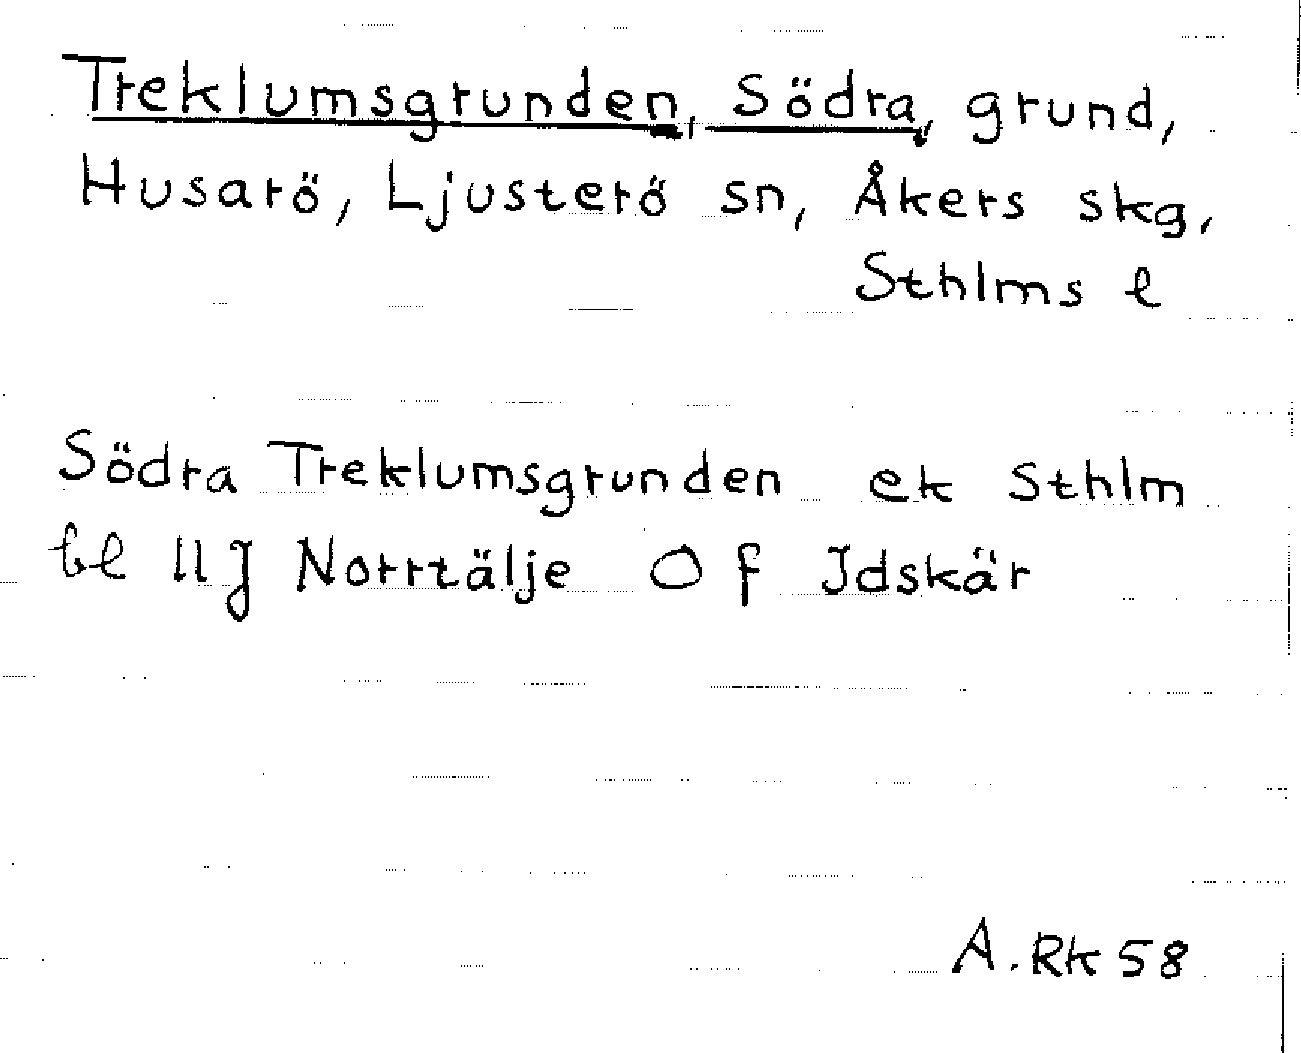 Treklumsgrunden, Södra, grund,
Husarö, Ljusterö sn, Åkers skg,
Sthlms l
Södra Treklumsgrunden ek Sthlm
bl 11J Norrtälje O f Idskär
A. Rk 58